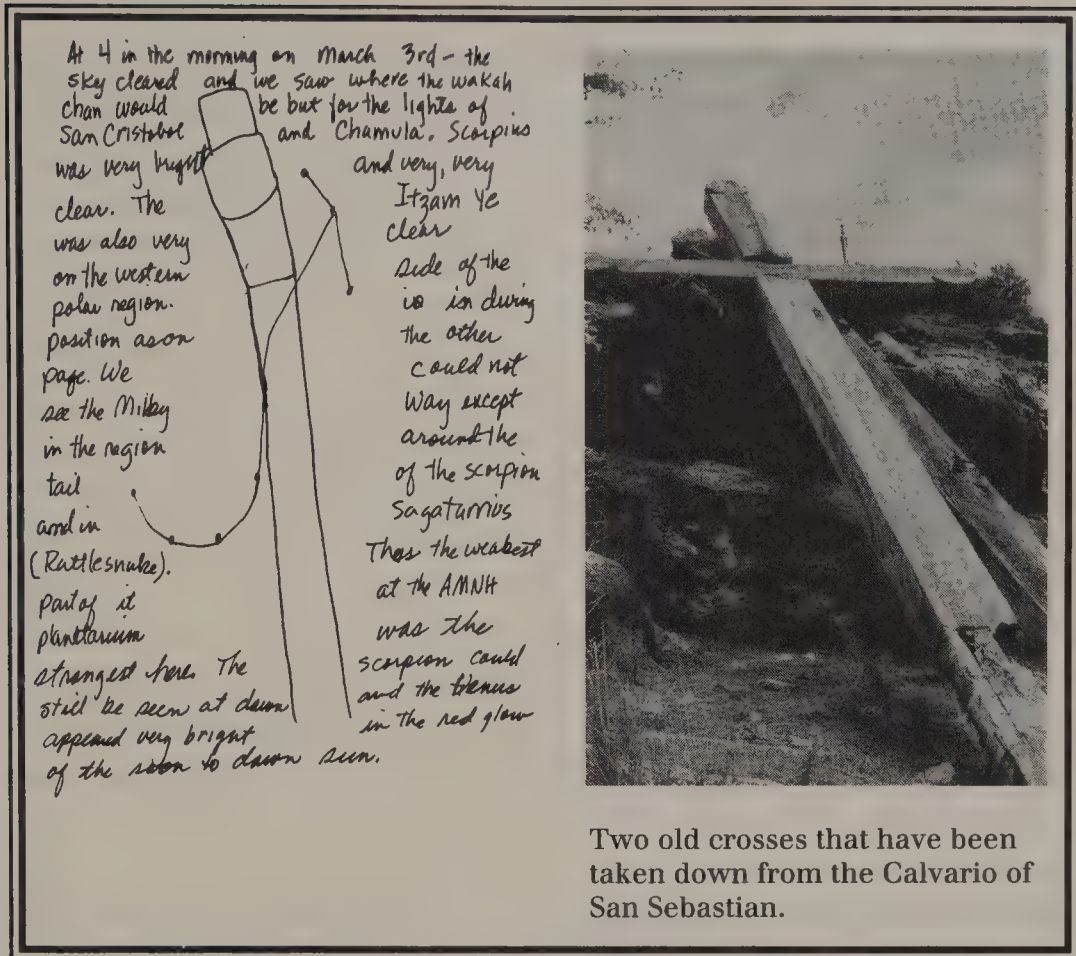 At 4 in the morning on March 3rd – the
sky cleared and we saw where the wakah
chan would be but for the lights of
San Cristobol and Chamula. Scorpius
was very bright and very, very
clear. The Itzam Ye
was also very clear
on the western side of the
polar region. is in during
position as on the other
page. We could not
see the Milky Way except
in the region around the
tail of the scorpion
and in Sagatarrius
(Rattlesnake). Thas the weakest
part of it at the AMNH
planetarium was the
strongest here. The scorpion could
still be seen at dawn and the Venus
appeared very bright in the red glow
of the soon to dawn sun.
Two old crosses that have been
taken down from the Calvario of
San Sebastian.